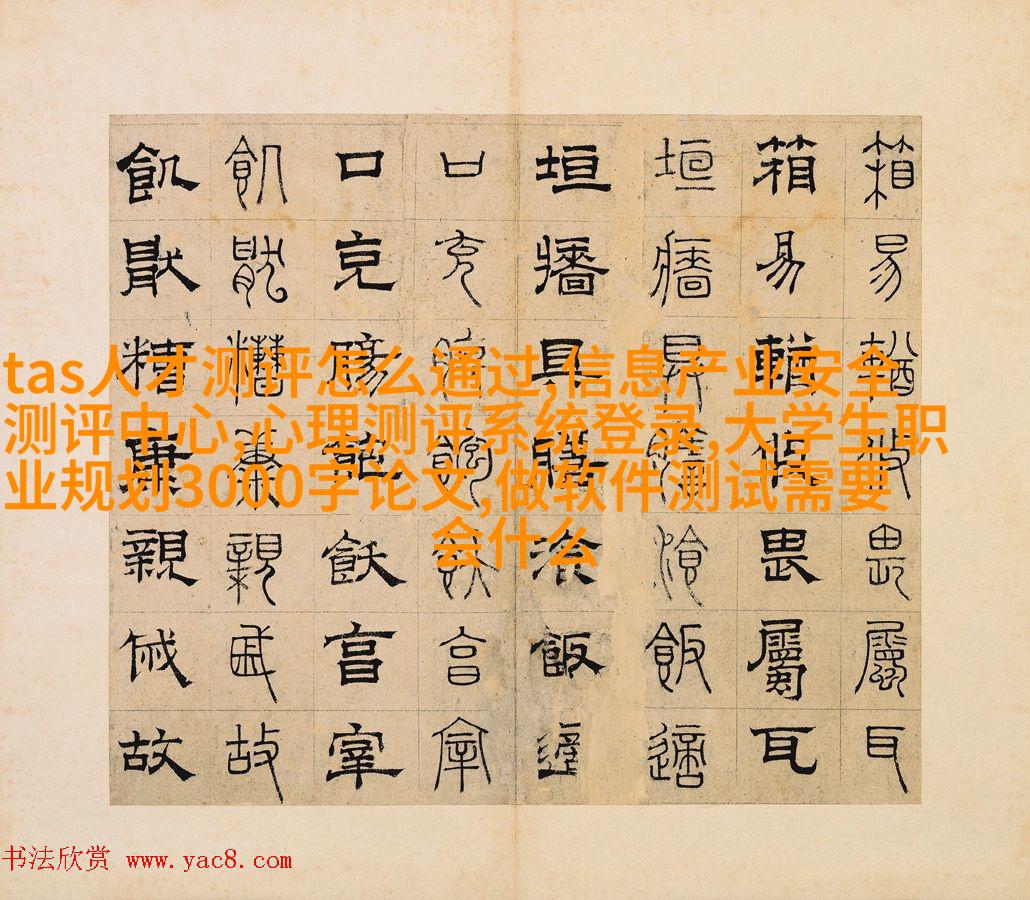 箱易輶攸畏屬耳
箱易輶攸畏屬耳
垣牆具膳飡飯適
垣牆具膳飡飯適
口充腸飽飫亯宰
口充腸飽飫亯宰
飢猒糟糠親戚故
飢猒糟糠親戚故
tas人才测评怎么通过,信息产业安全
测评中心,心理测评系统登录,大学生职
业规划3000字论文,做软件测试需要
会什么
书法欣赏 www.yac8.com